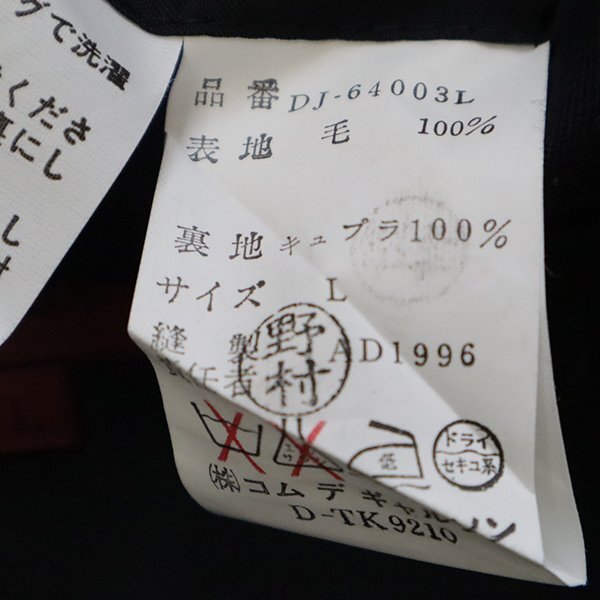 グで洗濯
くださ
にし
し
品番 DJ-64003L
表地 毛 100%
裏地 キュプラ100%
サイズ L
縫製 AD1996
者
野村
低
ドライ
セキユ系
㈱コムデギャルソン
D-TK9210